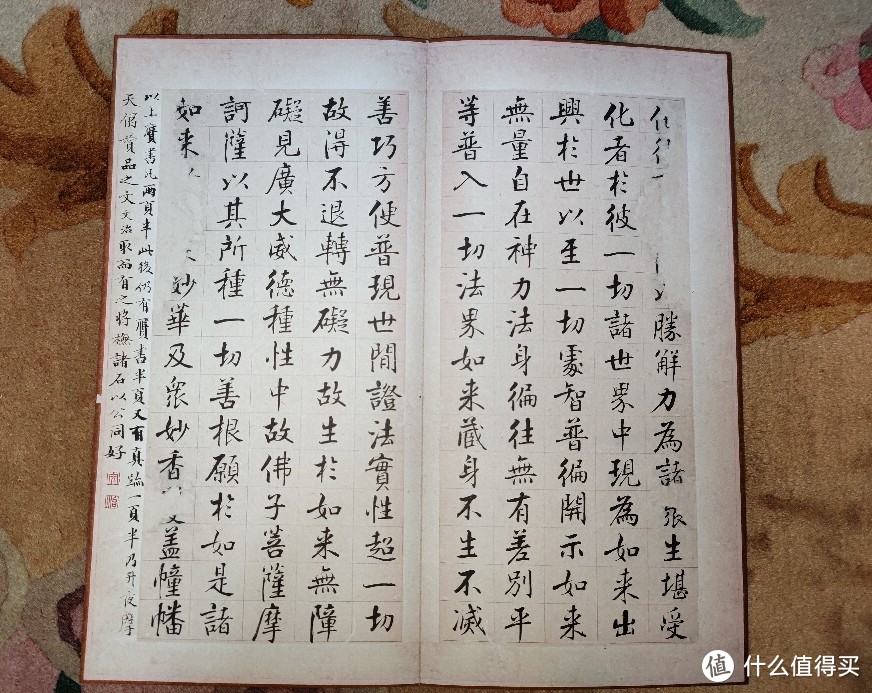 勝解力為諸衆生堪受
化者於彼一切諸世界中現為如来出
興於世以至一切處智普徧開示如来
無量自在神力法身徧往無有差別平
等普入一切法界如来藏身不生不滅
善巧方便普現世間證法實性超一切
故得不退轉無礙力故生於如来無障
礙見廣大威德種性中故佛子菩薩摩
訶薩以其所種一切善根願於如是諸
如来妙華及衆妙香蓋幢幡
以上贋書凡兩頁半此後仍有贋書半頁又有真跡一頁半乃升夜摩
天偈贊品之文文治取而有之將橅諸石以公同好
值 什么值得买